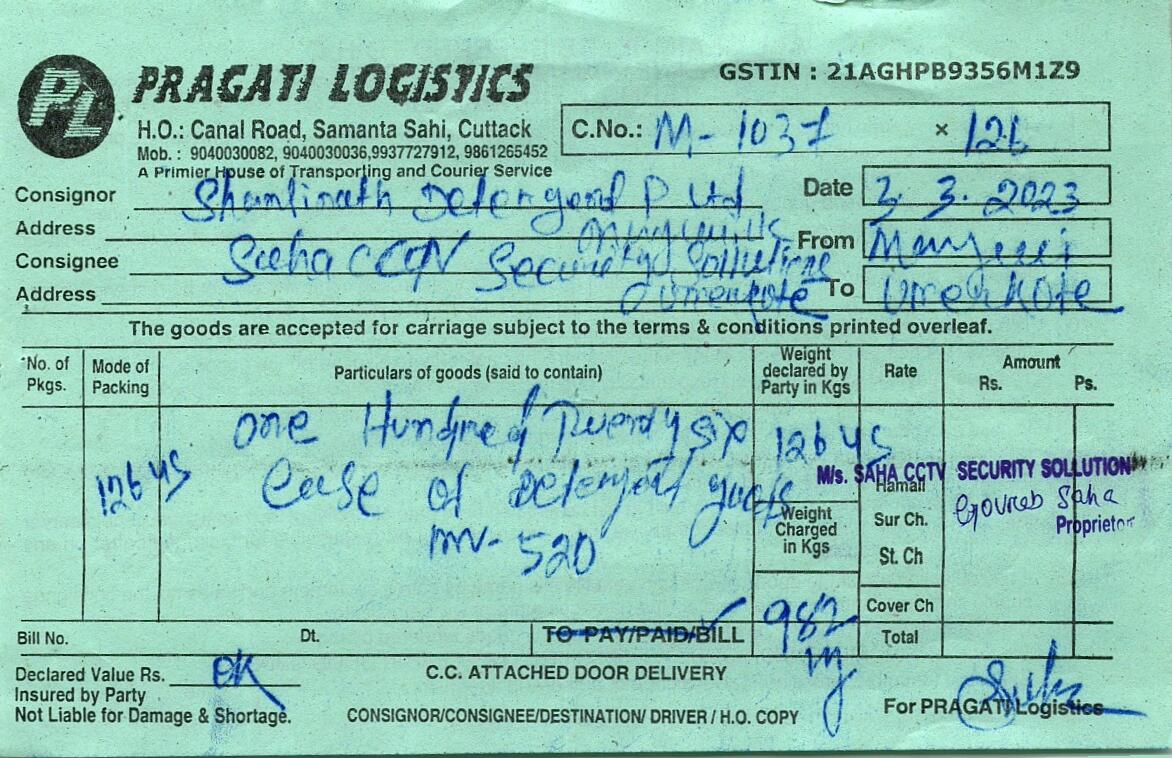 PL PRAGATI LOGISTICS
GSTIN : 21AGHPB9356M1Z9
H.O.: Canal Road, Samanta Sahi, Cuttack
Mob. : 9040030082, 9040030036,9937727912, 9861265452
A Primier House of Transporting and Courier Service
C.No.: M- 1037 × 126
Consignor Shantinath Detergend P Ltd
Date 3. 3. 2023
Address
From
Consignee Saha CCTV Security Sollutions
Address Umerkote
To Umerkote
The goods are accepted for carriage subject to the terms & conditions printed overleaf.
No. of Pkgs. Mode of Packing Particulars of goods (said to contain) Weight declared by Party in Kgs Rate Amount Rs. Ps.
one Hundred Twenty six
126 126
Case of Detergent goods
M/s. SAHA CCTV SECURITY SOLLUTION
Hamali
Gourab Saha
Proprietor
Weight Charged in Kgs
Sur Ch.
INV- 520
St. Ch
982
Cover Ch
Bill No. Dt. TO-PAY/PAID/BILL Total
Declared Value Rs. OK
C.C. ATTACHED DOOR DELIVERY
Insured by Party
Not Liable for Damage & Shortage.
CONSIGNOR/CONSIGNEE/DESTINATION/ DRIVER / H.O. COPY
For PRAGATI Logistics